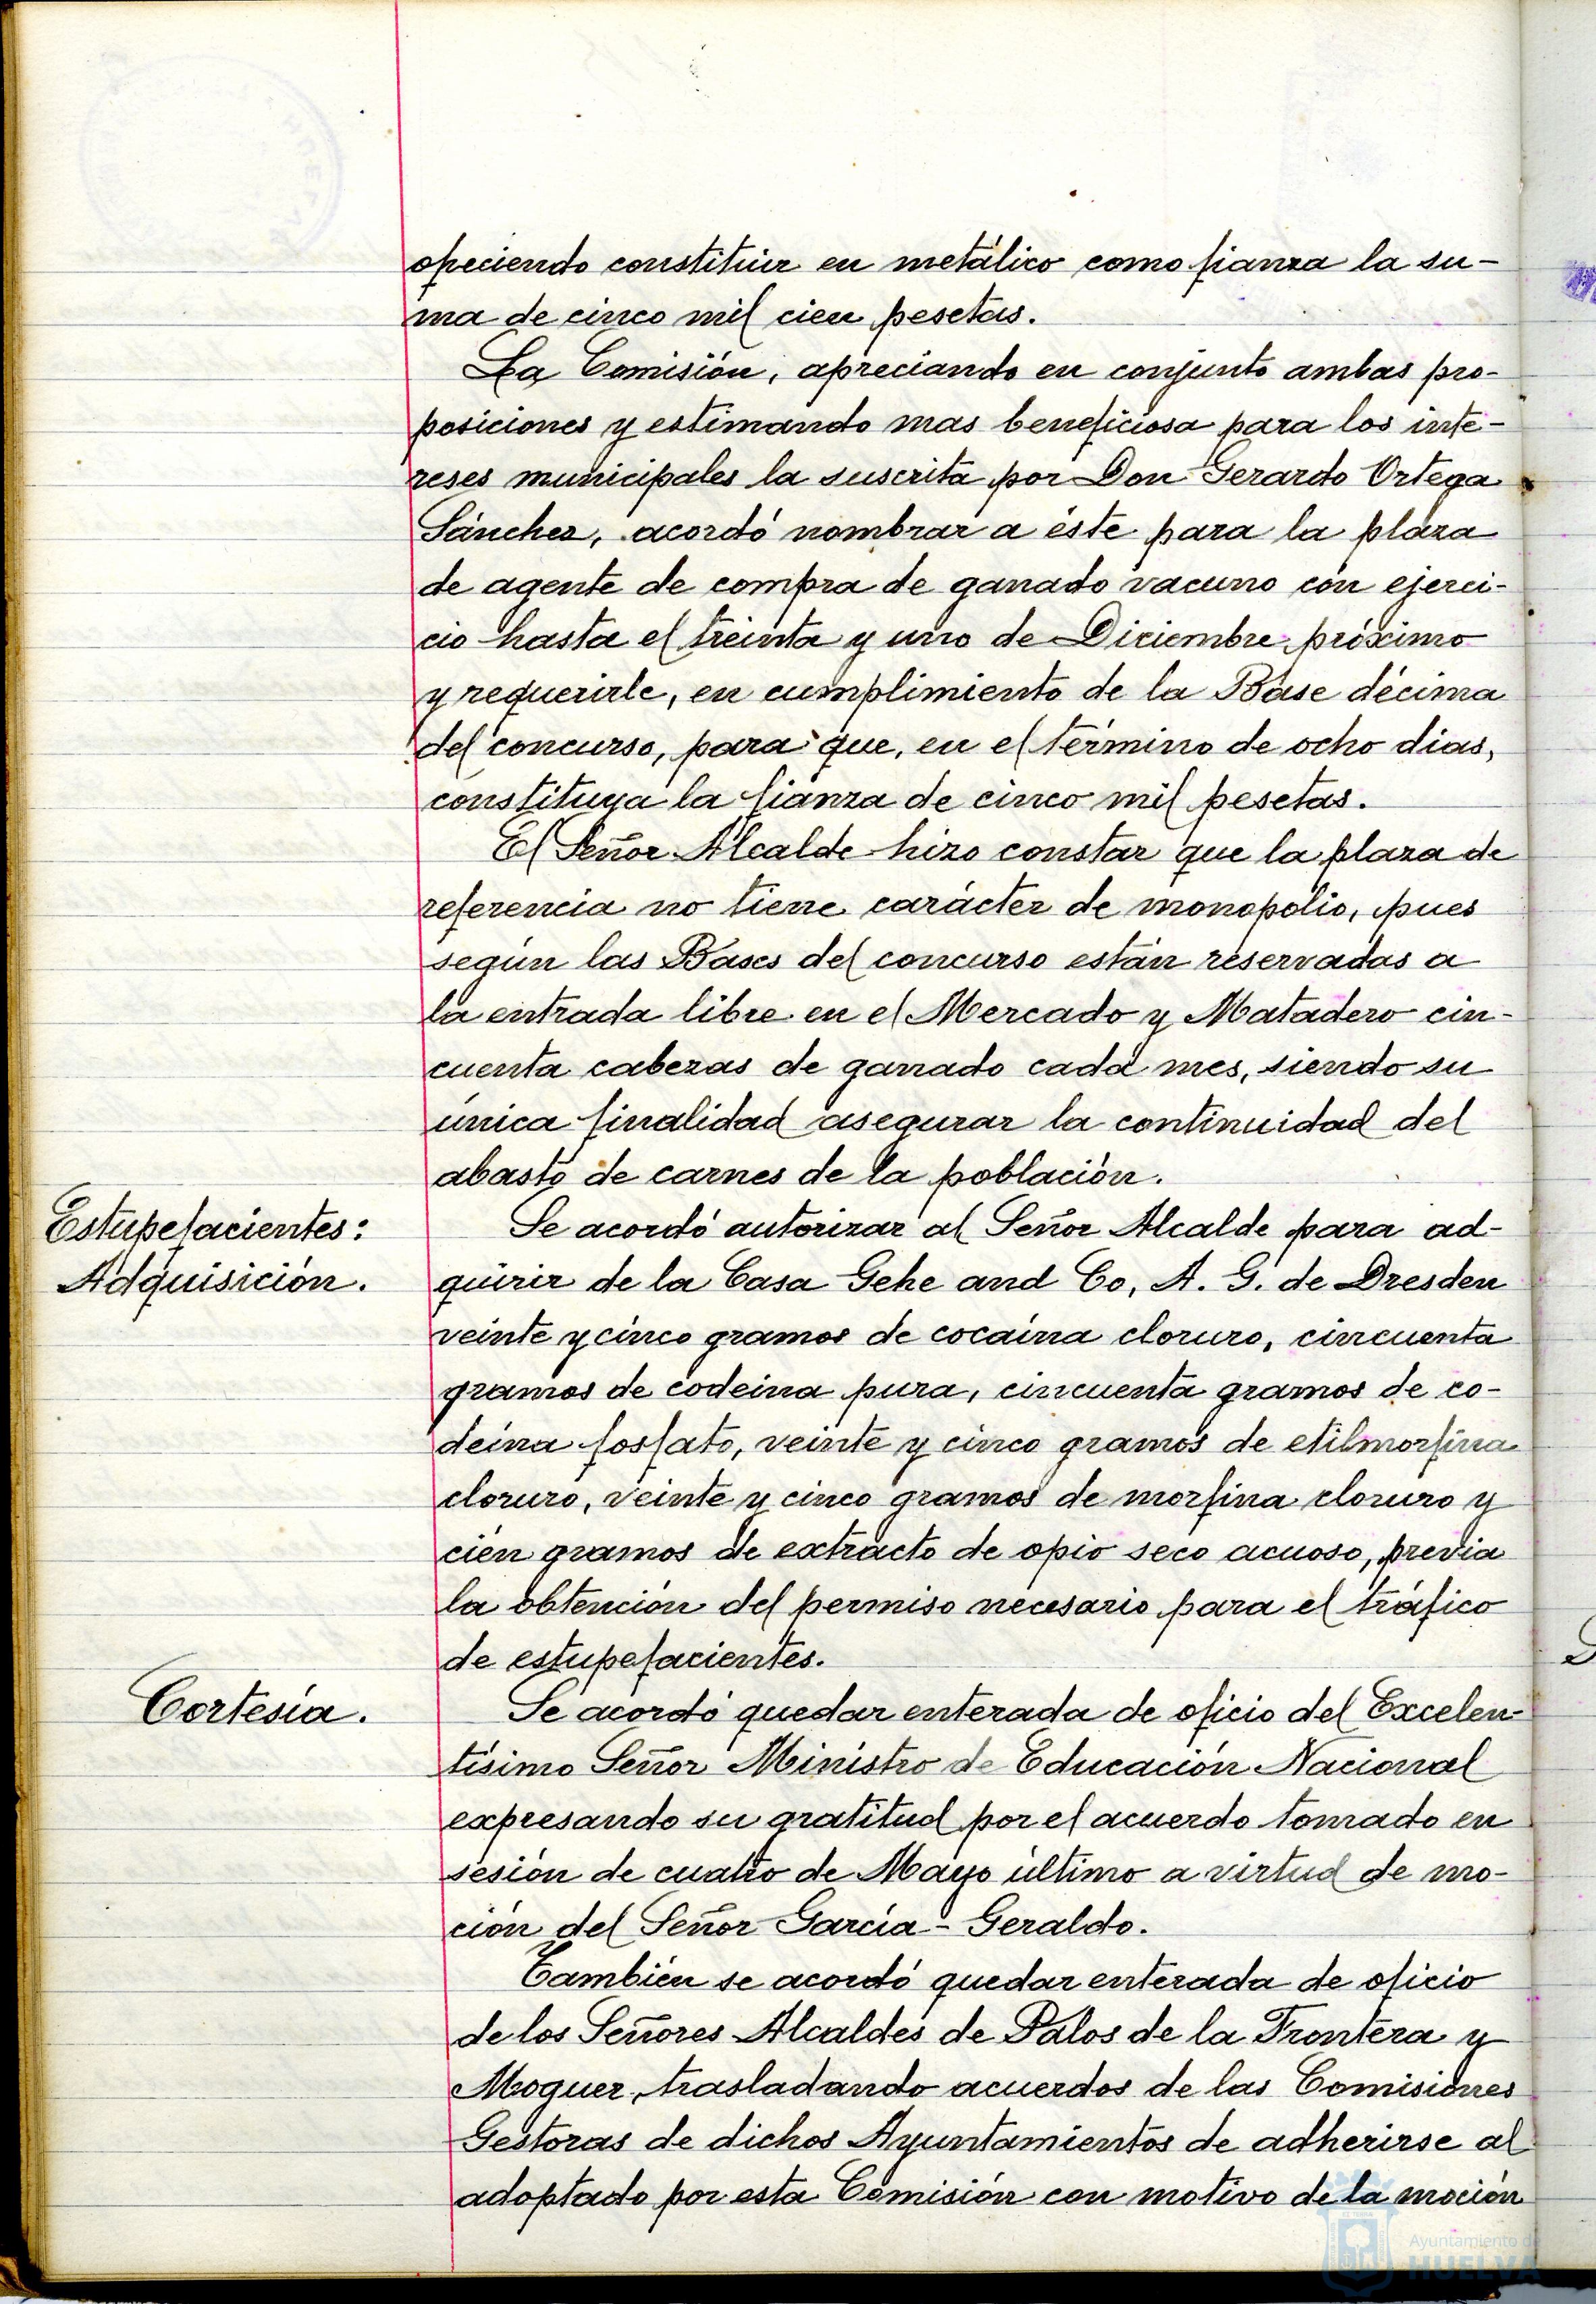 ofreciendo constituir en metálico como fianza la su-
ma de cinco mil cien pesetas.
La Comisión, apreciando en conjunto ambas pro-
posiciones y estimando mas beneficiosa para los inte-
reses municipales la suscrita por Don Gerardo Ortega
Sánchez, acordó nombrar a éste para la plaza
de agente de compra de ganado vacuno con ejerci-
cio hasta el treinta y uno de Diciembre próximo
y requerirle, en cumplimiento de la Base décima
del concurso, para que, en el término de ocho dias,
constituya la fianza de cinco mil pesetas.
El Señor Alcalde hizo constar que la plaza de
referencia no tiene carácter de monopolio, pues
según las Bases del concurso están reservadas a
la entrada libre en el Mercado y Matadero cin-
cuenta cabezas de ganado cada mes, siendo su
única finalidad asegurar la continuidad del
abasto de carnes de la población.
Estupefacientes:
Adquisición.
Se acordó autorizar al Señor Alcalde para ad-
quirir de la Casa Gehe and Co, A. G. de Dresden
veinte y cinco gramos de cocaína cloruro, cincuenta
gramos de codeina pura, cincuenta gramos de co-
deina fosfato, veinte y cinco gramos de etilmorfina
cloruro, veinte y cinco gramos de morfina cloruro y
cien gramos de extracto de opio seco acuoso, previa
la obtención del permiso necesario para el tráfico
de estupefacientes.
Cortesía.
Se acordó quedar enterada de oficio del Excelen-
tísimo Señor Ministro de Educación Nacional
expresando su gratitud por el acuerdo tomado en
sesión de cuatro de Mayo último a virtud de mo-
ción del Señor García-Geraldo.
También se acordó quedar enterada de oficio
de los Señores Alcaldes de Palos de la Frontera y
Moguer, trasladando acuerdos de las Comisiones
Gestoras de dichos Ayuntamientos de adherirse al
adoptado por esta Comisión con motivo de la moción
Ayuntamiento de
HUELVA